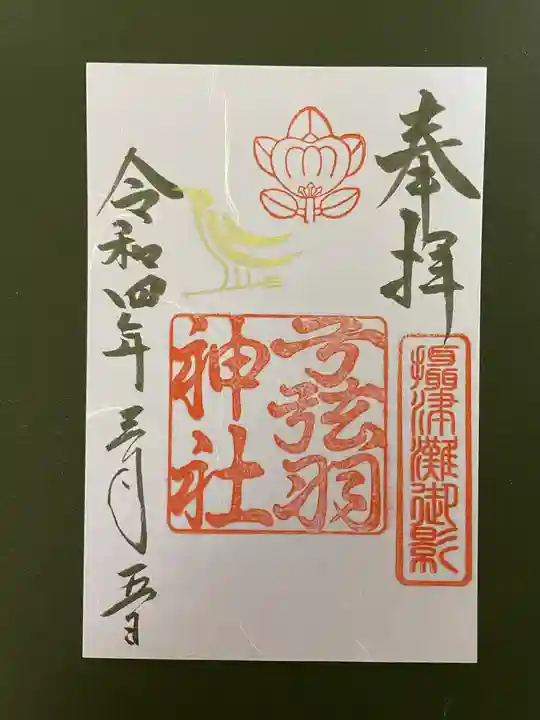 奉拝
攝津灘御影
弓弦羽
神社
令和四年三月五日